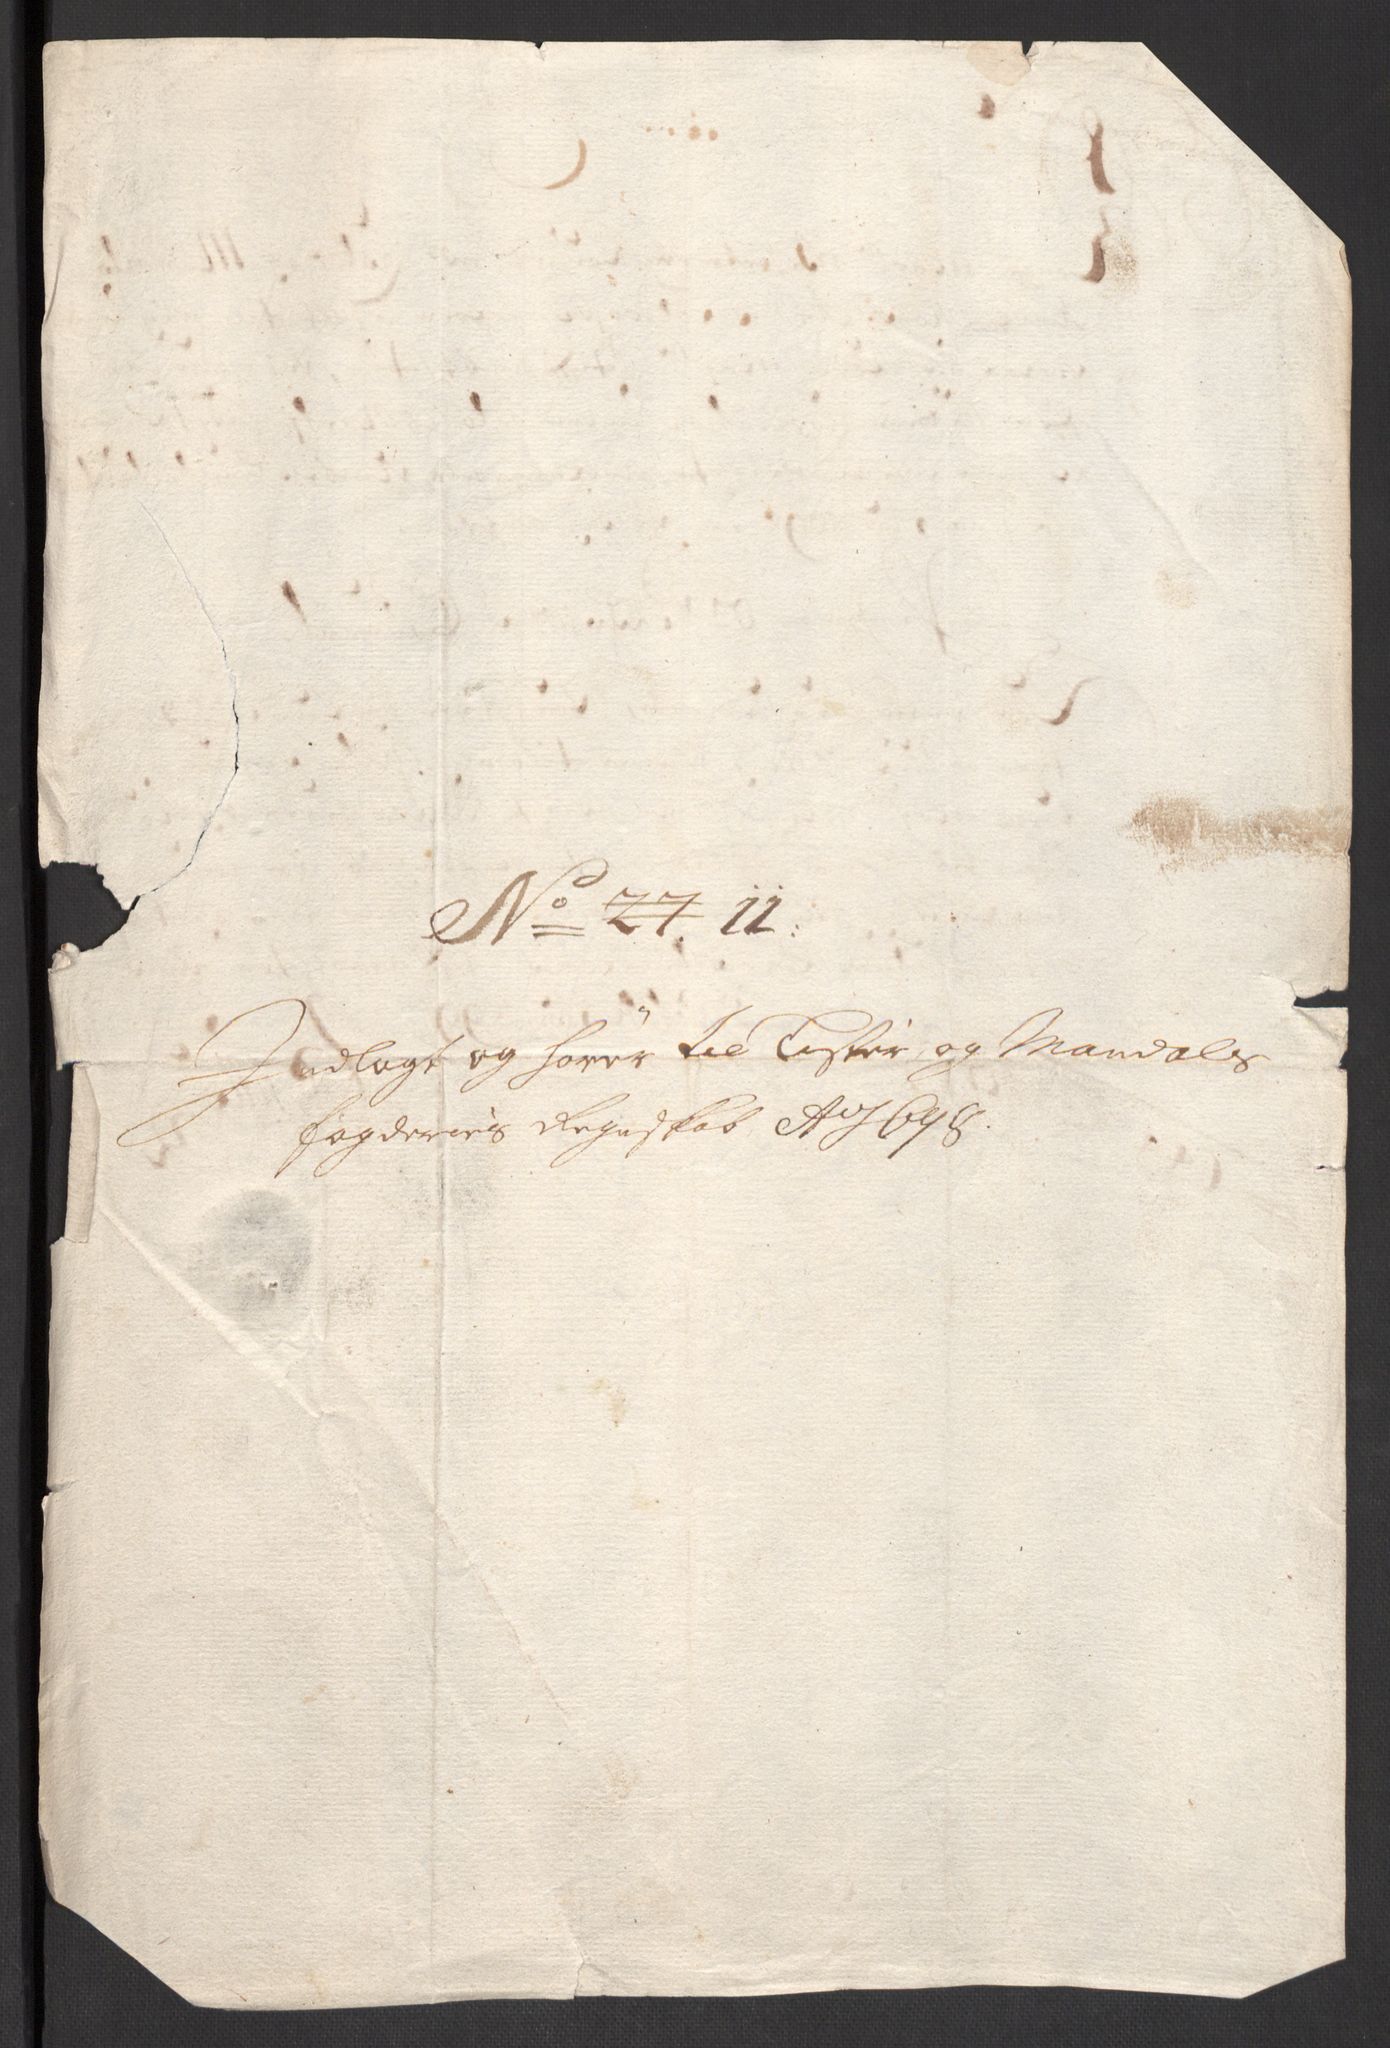 No 27. 11:
Indlagt og hörer til Lister og Mandals
fogderies Regnskab Ao 1698.